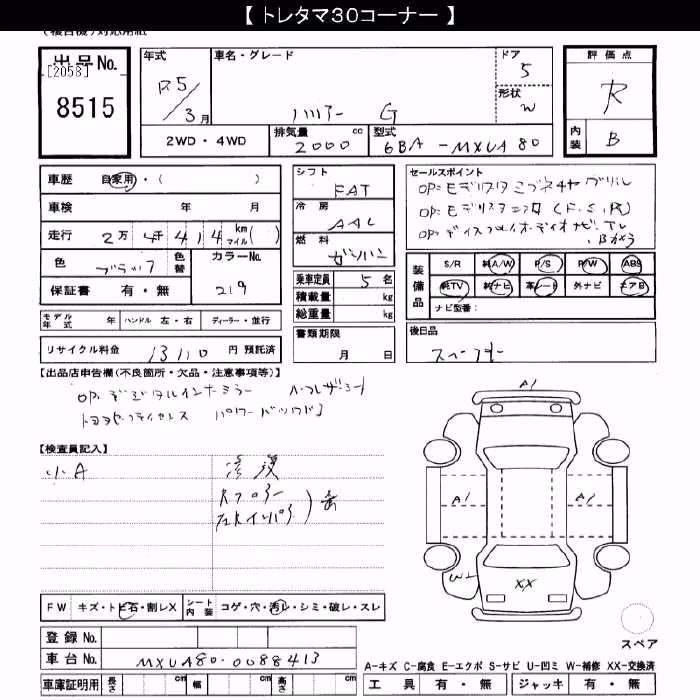 【 トレタマ30コーナー 】
出品No.
[2058]
8515
年式
R5/3月
車名・グレード
ハリアー G
ドア
5
形状
W
評価点
R
内装
B
2WD・4WD
排気量 2000 cc
型式 6BA-MXUA80
車歴 自家用・( )
車検 年 月
走行 2万4千414 km マイル( )
色 ブラック 色替
カラーNo. 219
保証書 有・無
シフト
FAT
冷房
AAC
燃料
ガソリン
乗車定員 5 名
積載量 kg
総重量 kg
書類期限
月 日
セールスポイント
OP=モデリスタ
OP=モデリスタエアロ(F,S,R)
OP=ディスプレイオーディオナビ,TV,
Bカメラ
装備品
S/R 純A/W P/S P/W ABS
純TV 純ナビ 革シート 外ナビ エアB
ナビ型番:
モデル年式 年 ハンドル 左・右 ディーラー・並行
リサイクル料金 13110 円 預託済
後日品
スペアキー
【出品店申告欄(不良箇所・欠品・注意事項等)】
OP=デジタルインナーミラー ハーフレザーシート
トヨタセーフティセンス パワーバックドア
【検査員記入】
小A
Rフロアー
左Rインパネ
FW キズ・トビ石・割レX
シート内装 コゲ・穴・汚レ・シミ・破レ・スレ
登録No.
車台No. MXUA80-0088413
車庫証明用 長さ cm 幅 cm 高さ cm
A1
A1
A1
W2
XX
スペア
A-キズ C-腐食 E-エクボ S-サビ U-凹ミ W-補修 XX-交換済
工具 有・無 ジャッキ 有・無